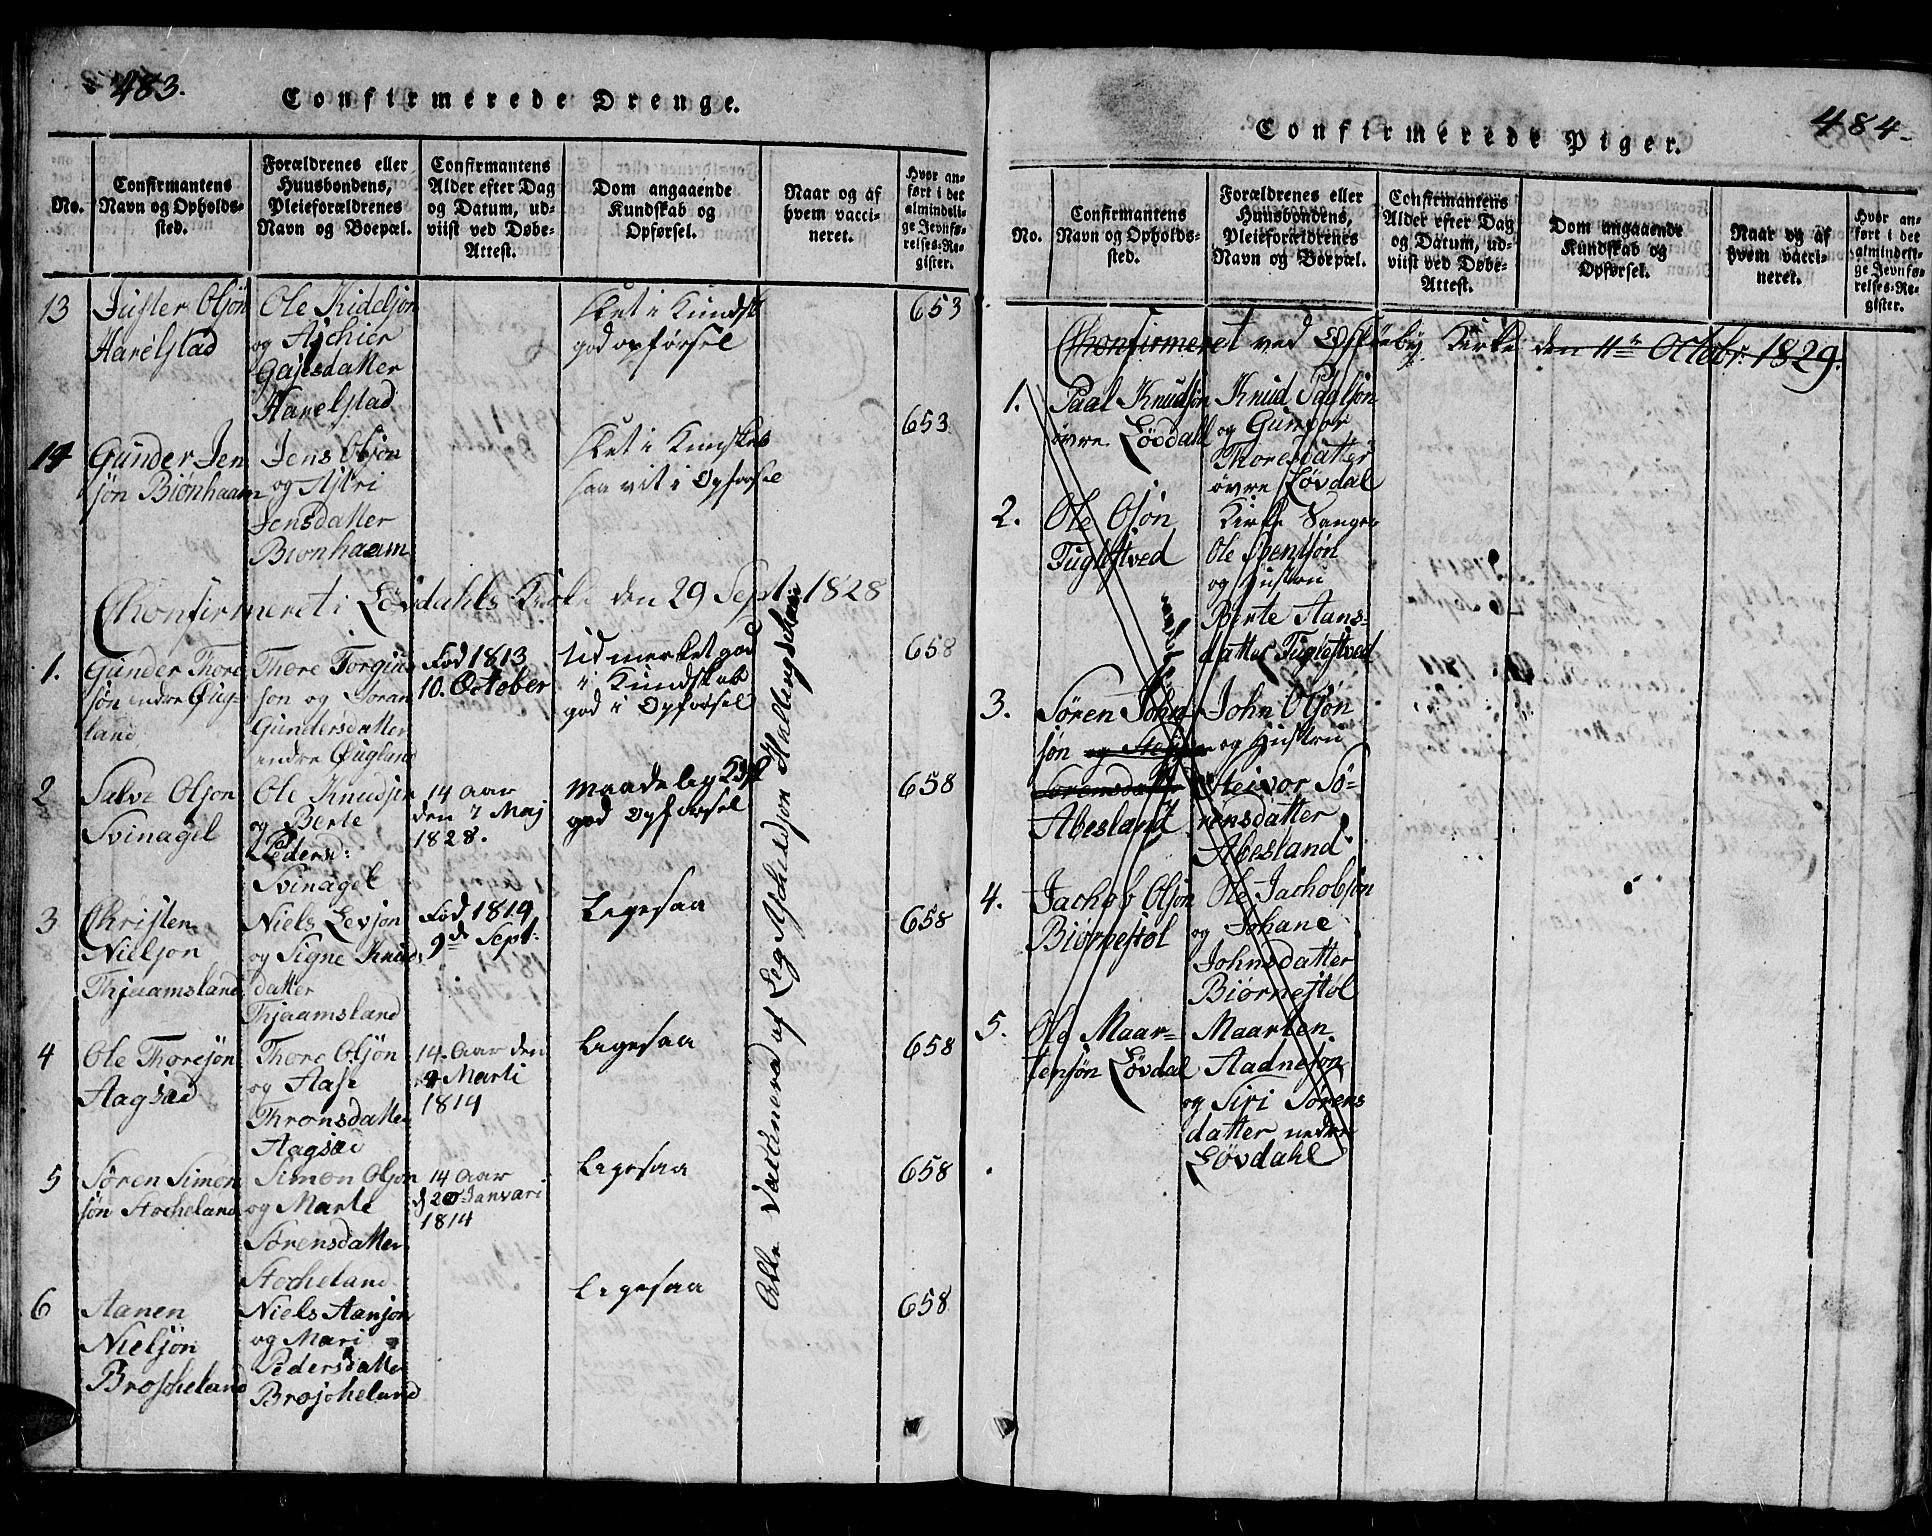 483.
Confirmerede Drenge.
No.
Confirmantens
Navn og Opholds-
sted.
Forældrenes eller
Huusbondens,
Pleieforældrenes
Navn og Boepæl.
Confirmantens
Alder efter Dag
og Datum, ud-
viist ved Døbe-
Attest.
Dom angaaende
Kundskab og
Opførsel.
Naar og af
hvem vacci-
neret.
Hvor an-
ført i det
almindeli-
ge Jevnfø-
relses-Re-
gister.
13
Olsøn
Harelstad
Ole Kidelsøn
og Aschier
Gaasdatter
Harelstad
slet i Kundsk
god opførsel
653
14
Gunder Jen
søn Biønhaam
Jens Olsøn
og Astri
Jensdatter
Biønhaam
slet i Kundskab
saa vit i Opførsel
653
Chonfirmeret i Løvdahls Kirke den 29 Sept: 1828
1.
Gunder Thore
søn indre Øug-
land
Thore Torgius
søn og Søran
Gundersdatter
indre Øugland
Fød 1813
10. October
Udmerket god
i Kundskab
god i Opførsel
658
2
Salve Olsøn
Svinagel
Ole Knudsøn
og Berte
Pedersd:
Svinagel
14 Aar
den 7 Maj
1828.
Maadeleg Kdsk
god opførsel
658
3
Christen
Nielsøn
Thjaamsland
Niels Levsøn
og Signe Knuds
datter
Thjaamsland
Fød 1814
9de Sept.
Ligesaa
658
4
Ole Thoresøn
Aagsæd
Thore Olsøn
og Aase
Thronsdatter
Aagsæd
14. Aar den
4 Marti
1814
Ligesaa
658
5
Søren Simon
søn Stocheland
Simon Olsøn
og Marte
Sørensdatter
Stocheland
14 Aar
d 20 Janvari
1814
Ligesaa
658
6
Aanen
Nielsøn
Broscheland
Niels Aansøn
og Mari
Pedersdatter
Broscheland
Ligesaa
658
Alle Vaccinered af Leg Aschildsøn Hallangscheien
484
Confirmerede Piger.
No.
Confirmantens
Navn og Opholds-
sted.
Forældrenes eller
Huusbondens,
Pleieforældrenes
Navn og Boepæl.
Confirmantens
Alder efter Dag
og Datum, ud-
viist ved Døbe-
Attest.
Dom angaaende
Kundskab og
Opførsel.
Naar og af
hvem vacci-
neret.
Hvor an-
ført i det
almindeli-
ge Jevnfø-
relses-Re-
gister.
Chonfirmeret ved Øslebye Kirke den 11te Octobr: 1829.
1.
Paal Knudsøn
øvre Løvdahl
Knud Paalsøn
og Gunvor
Thoresdatter
øvre Løvdal
2.
Ole Olsøn
Fuglestved
Kirke Sanger
Ole Svensøn
og Hustru
Berte Aans-
datter Fuglestved
3.
Søren John
søn og
Sørensdatter
Abesland
John Olsøn
og Hustru
Steivor Sø-
rensdatter
Abesland
4.
Jachob Olsøn
Biørnestøl
Ole Jachobsøn
og Johane
Johnsdatter
Biørnestøl
5.
Ole Maar-
tensøn Løvdal
Maarten
Aadnesøn
og Siri Sørens
datter nedre
Løvdahl